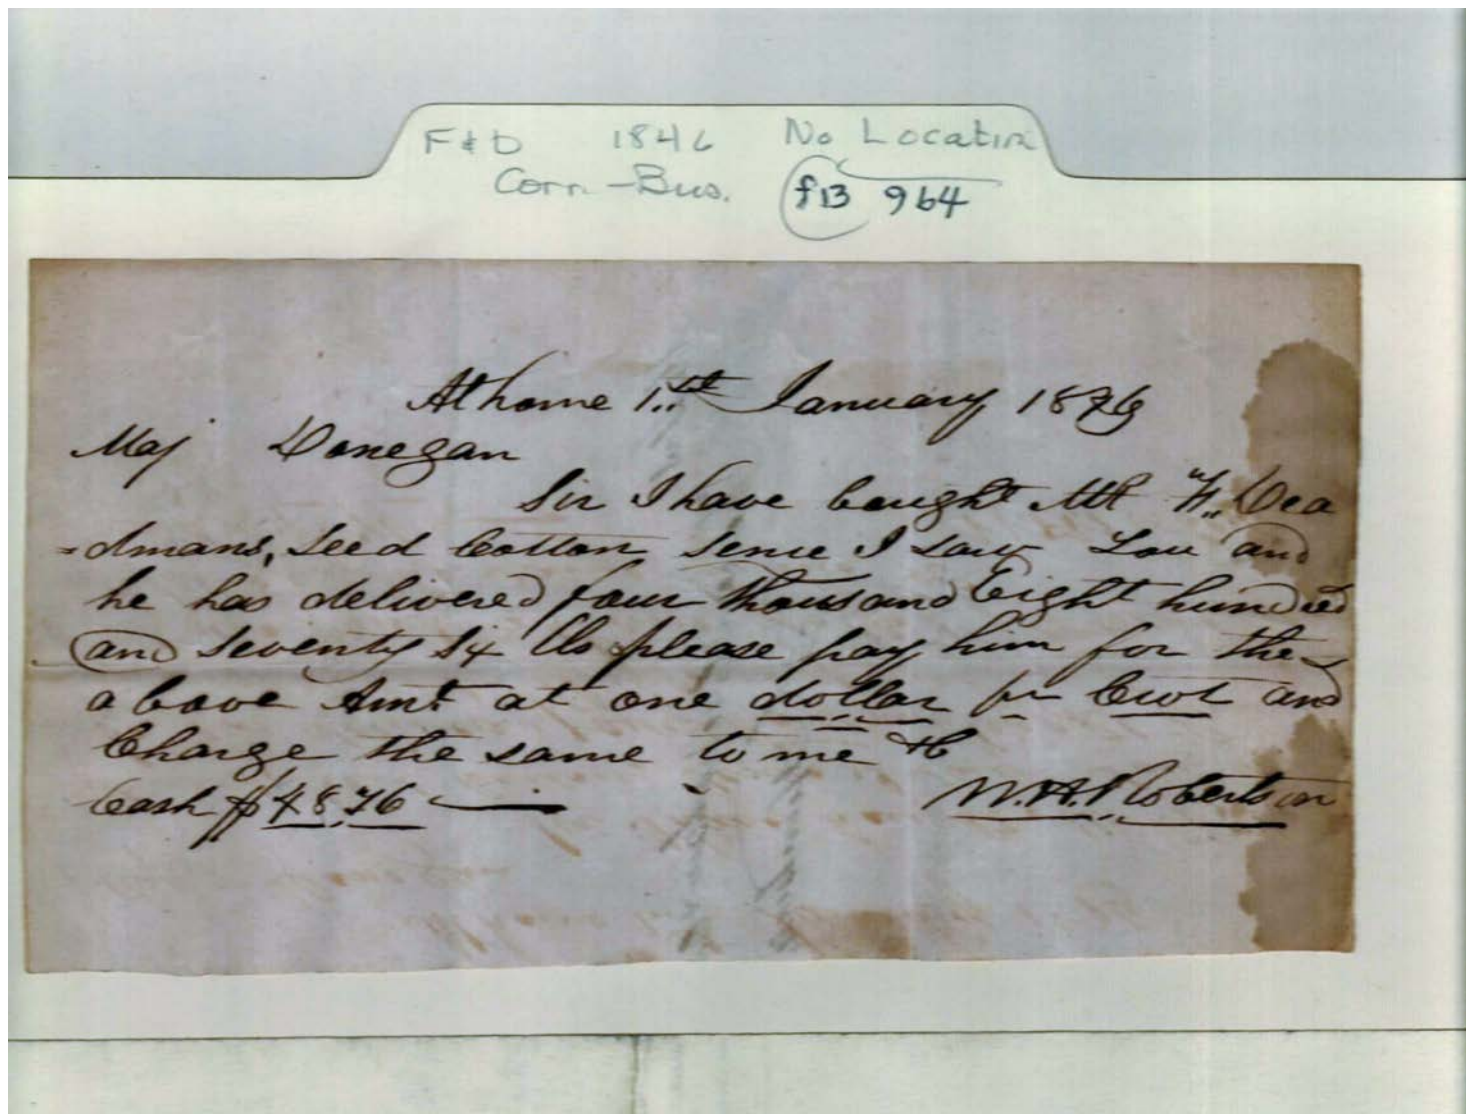 F & D 1846 No Location
Corr. - Bus. f13 964
At home 1st January 1846
Maj Donegan
Sir I have bought Mr W. Dea
=dmans, Seed Cotton sence I saw You and
he has delivered four thousand Eight hundred
and seventy six lbs please pay him for the
above Amt at one dollar pr Cwt and
Charge the same to me &C
Cash $48,76
W.H. Robertson